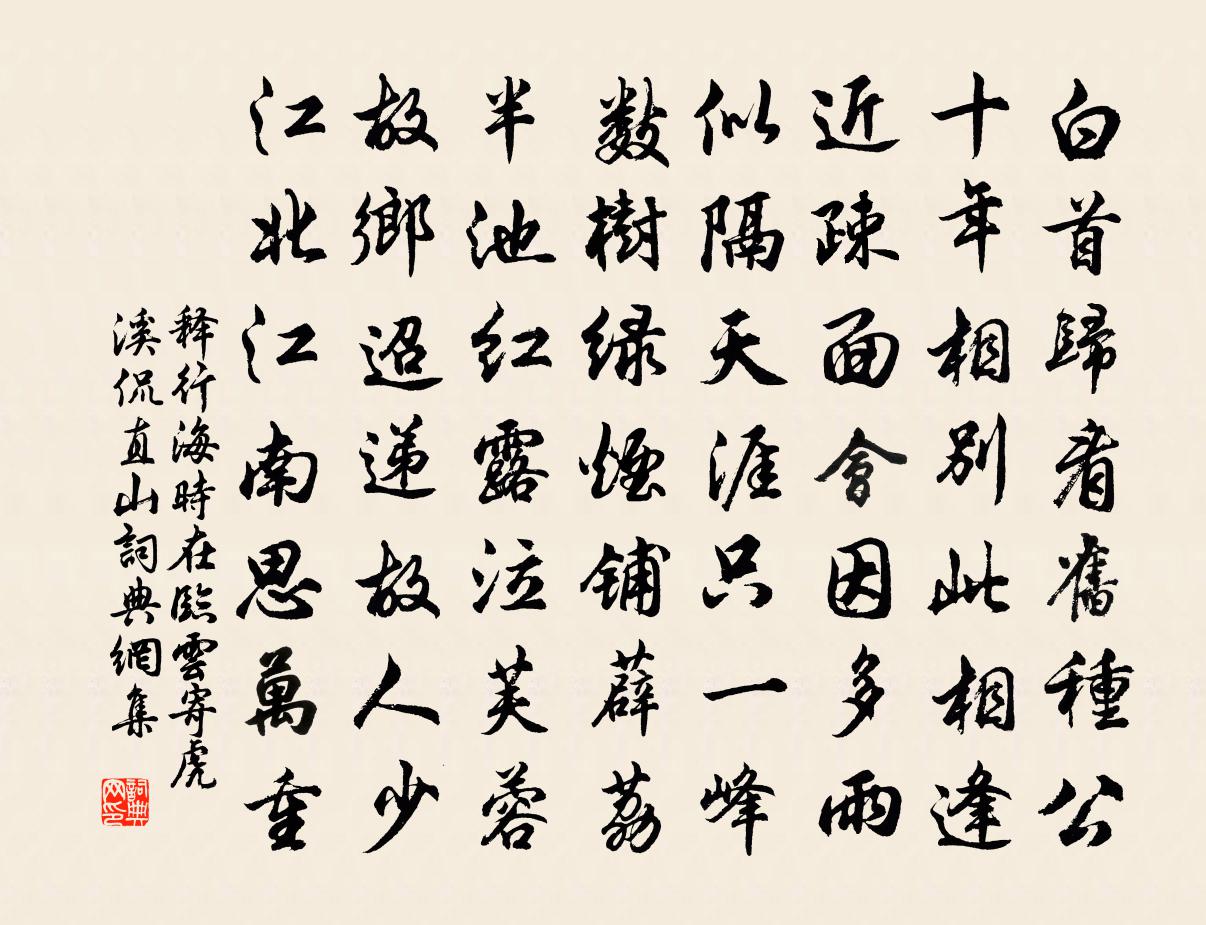 白首歸看舊種公
十年相別此相逢
近疎面會因多雨
似隔天涯只一峰
數樹绿煙鋪薜荔
半池紅露泣芙蓉
故鄉迢递故人少
江北江南思萬重
释行海時在臨雲寄虎
溪侃直山詞典網集
詞典网印